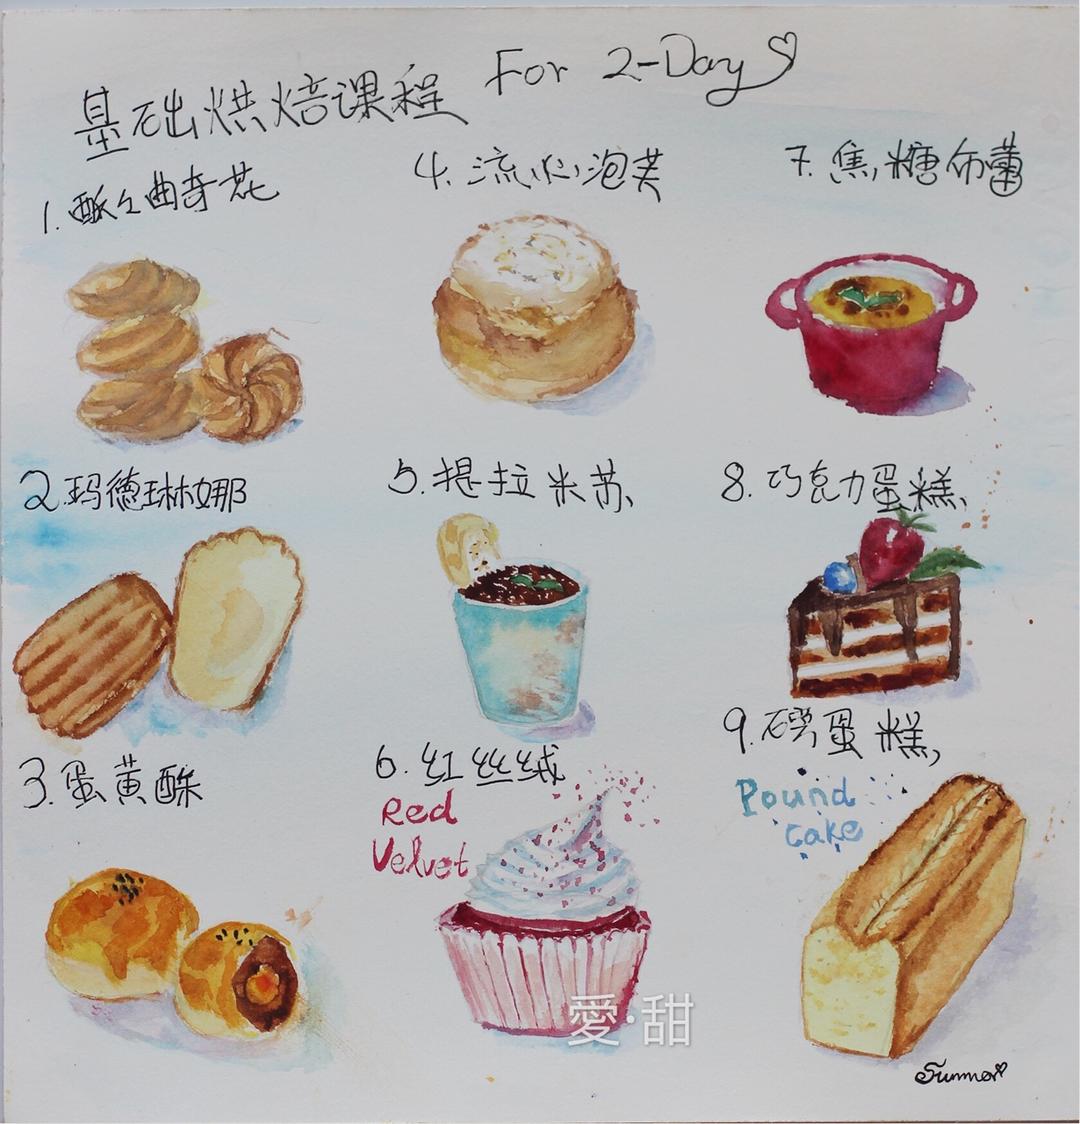 基础烘焙课程 For 2-Day
1. 酥々曲奇花
4. 流心泡芙
7. 焦糖布蕾
2. 玛德琳娜
5. 提拉米苏、
8. 巧克力蛋糕、
3. 蛋黄酥
6. 红丝绒
Red
Velvet
9. 磅蛋糕,
Pound
cake
愛·甜
Summer